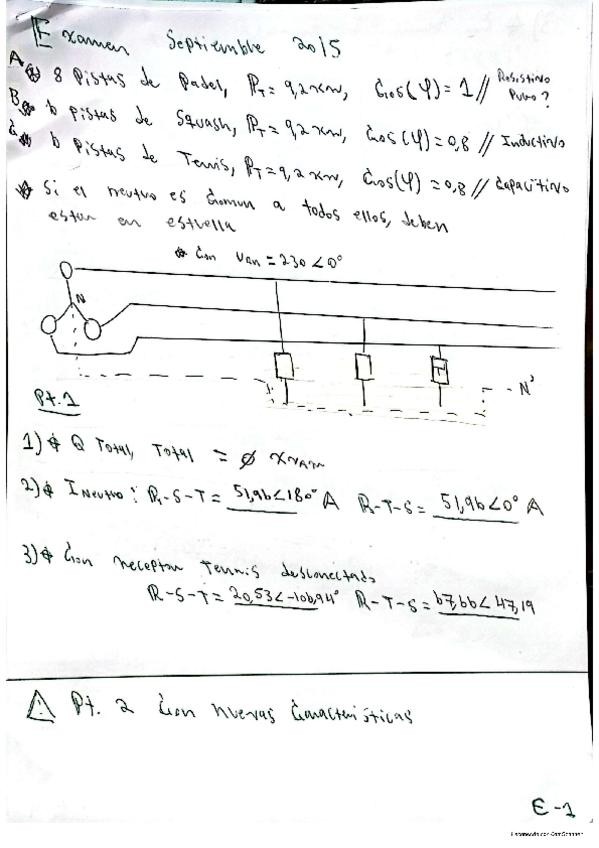 Examen Septiembre 2015
A 8 Pistas de Padel, PT = 9,2 kW, Cos(φ) = 1 // Resistivo Puro?
B 6 Pistas de Squash, PT = 9,2 kW, Cos(φ) = 0,8 // Inductivo
C 6 Pistas de Tenis, PT = 9,2 kW, Cos(φ) = 0,8 // Capacitivo
Si el neutro es comun a todos ellos, deben
estar en estrella
Con Van = 230∠0°
N
N'
Pt.1
1) Q Total, Total = ø kVAr
2) I Neutro: R-S-T = 51,96∠180° A R-T-S = 51,96∠0° A
3) Con receptor Tennis desconectado
R-S-T = 20,53∠-106,94° R-T-S = 67,66∠47,19
Pt. 2 Con nuevas Características
E-1
Escaneado con CamScanner